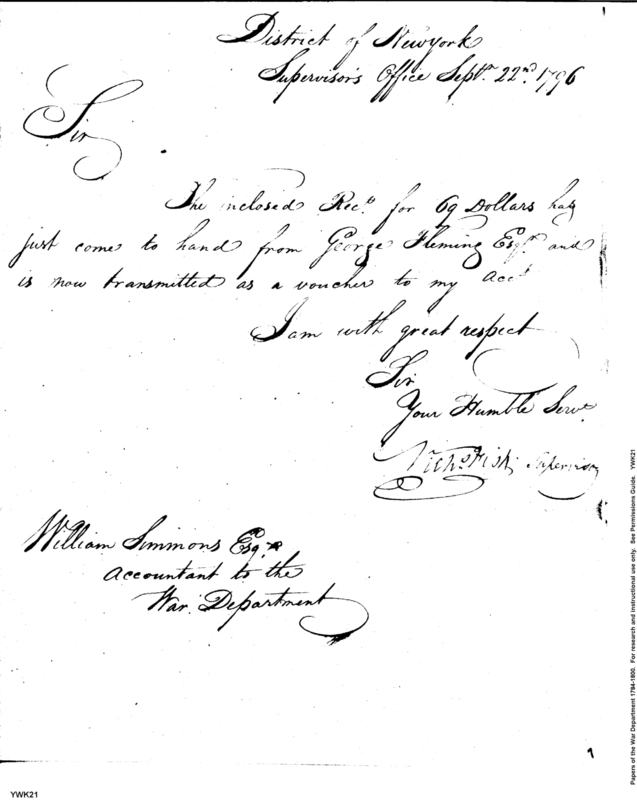 District of Newyork
Supervisor's Office Septr. 22nd. 1796
Sir
The inclosed Rect. for 69 Dollars has
just come to hand from George Fleming Esqr. and
is now transmitted as a voucher to my acct.
I am with great respect
Sir
Your Humble Servt.
Nichs. Fish Supervisor
William Simmons Esqr.
Accountant to the
War Department
Papers of the War Department 1784-1800. For research and instructional use only. See Permissions Guide. YWK21
YWK21